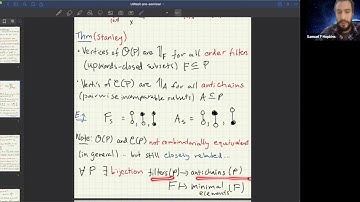 UMNati pre-seminar
Samuel F Hopkins
Thm (Stanley)
• Vertices of O(P) are 𝟙_F for all order filters
(upwards-closed subsets) F ⊆ P
• Vertices of C(P) are 𝟙_A for all antichains
(pairwise incomparable subsets) A ⊆ P
E.g. F's = A's =
Note: O(P) and C(P) not combinatorially equivalent
(in general) - but still closely related...
∀ P ∃ bijection filters(P) → antichains(P)
F ↦ minimal (F)
elements